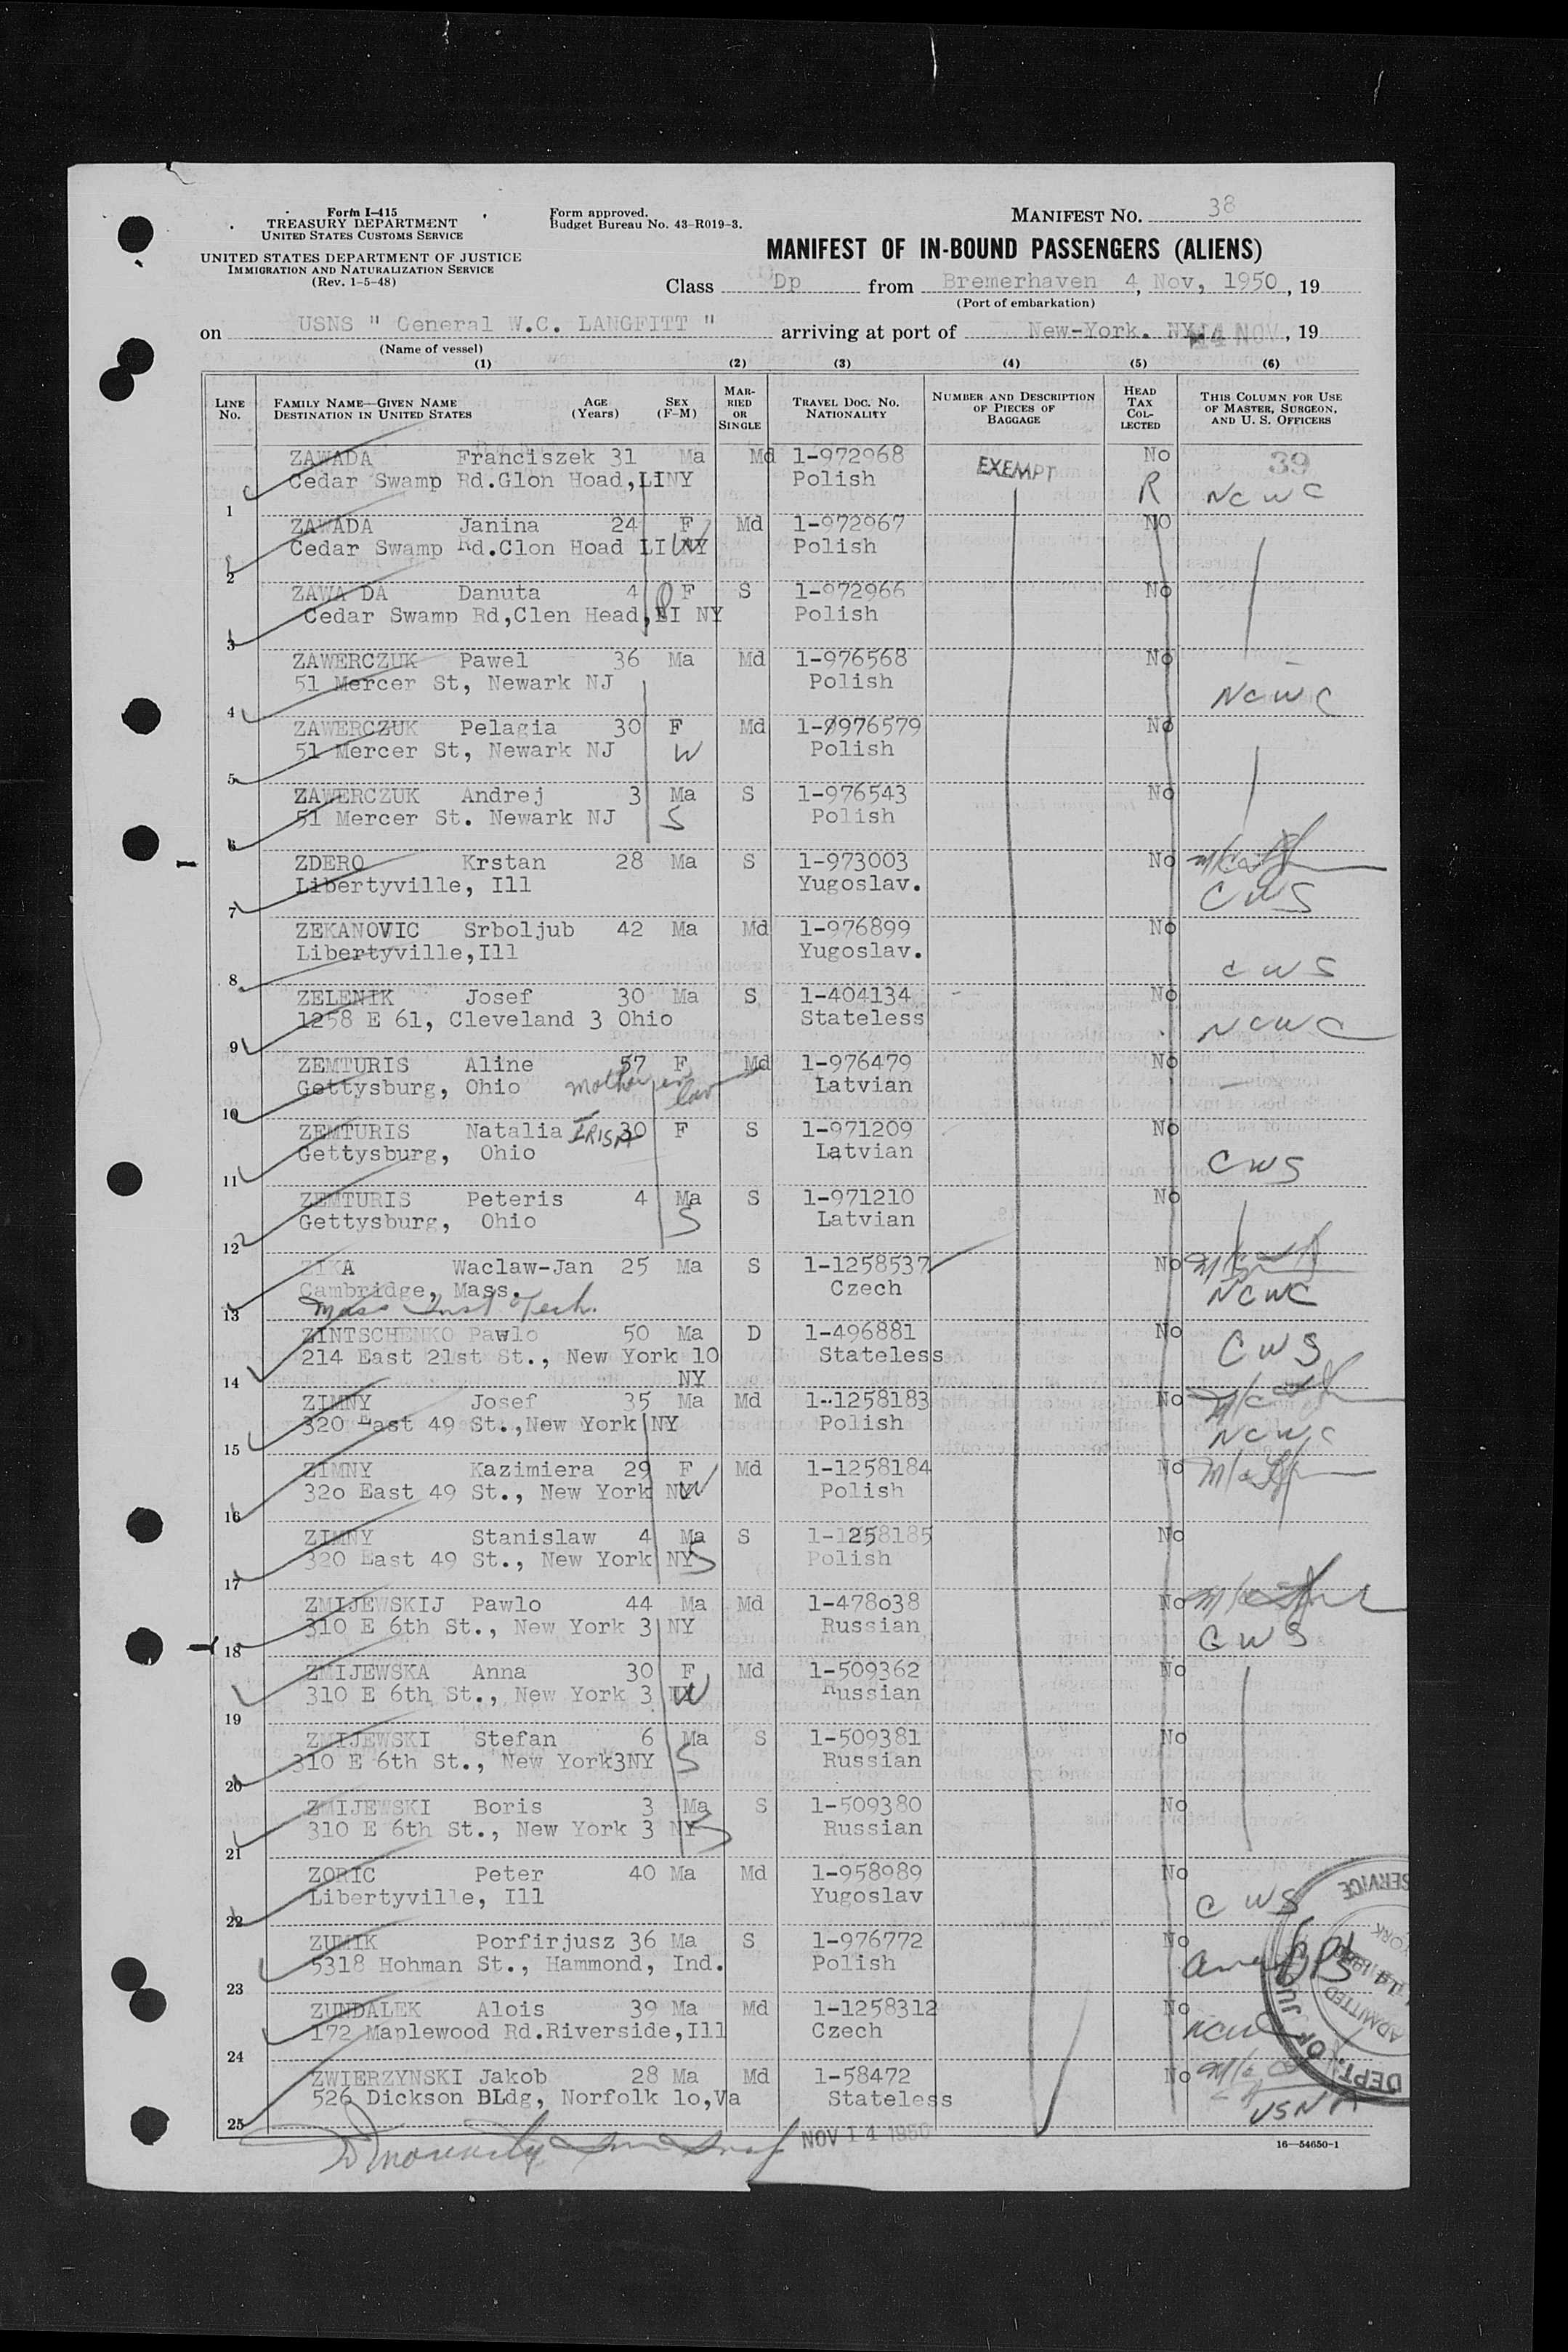 Form I-415
TREASURY DEPARTMENT
UNITED STATES CUSTOMS SERVICE
UNITED STATES DEPARTMENT OF JUSTICE
IMMIGRATION AND NATURALIZATION SERVICE
(Rev. 1-5-48)
Form approved.
Budget Bureau No. 43-R019-3.
MANIFEST NO. 38
MANIFEST OF IN-BOUND PASSENGERS (ALIENS)
Class Dp from Bremerhaven 4, Nov, 1950, 19
(Port of embarkation)
on USNS " General W.C. LANGFITT " arriving at port of New-York. NY 14 NOV, 19
(Name of vessel)
(1) (2) (3) (4) (5) (6)
LINE NO. FAMILY NAME—GIVEN NAME DESTINATION IN UNITED STATES AGE (Years) SEX (F-M) MARRIED OR SINGLE TRAVEL DOC. NO. NATIONALITY NUMBER AND DESCRIPTION OF PIECES OF BAGGAGE HEAD TAX COLLECTED THIS COLUMN FOR USE OF MASTER, SURGEON, AND U. S. OFFICERS
ZAWADA Franciszek 31 Ma Md 1-972968 EXEMPT No 39
1 Cedar Swamp Rd.Glon Hoad,LINY Polish R NCWC
ZAWADA Janina 24 F Md 1-972967 NO
2 Cedar Swamp Rd.Clon Hoad LI NY W Polish
ZAWA DA Danuta 4 F S 1-972966 No
3 Cedar Swamp Rd,Clen Head,LI NY Polish
ZAWERCZUK Pawel 36 Ma Md 1-976568 No
4 51 Mercer St, Newark NJ Polish NCWC
ZAWERCZUK Pelagia 30 F Md 1-9976579 No
5 51 Mercer St, Newark NJ W Polish
ZAWERCZUK Andrej 3 Ma S 1-976543 No
6 51 Mercer St. Newark NJ S Polish
ZDERO Krstan 28 Ma S 1-973003 No
7 Libertyville, Ill Yugoslav. CWS
ZEKANOVIC Srboljub 42 Ma Md 1-976899 No
8 Libertyville,Ill Yugoslav. CWS
ZELENIK Josef 30 Ma S 1-404134 No
9 1258 E 61, Cleveland 3 Ohio Stateless NCWC
ZEMTURIS Aline 57 F Md 1-976479 No
10 Gettysburg, Ohio mother in law Latvian
ZEMTURIS Natalia IRISA 30 F S 1-971209 No
11 Gettysburg, Ohio Latvian CWS
ZEMTURIS Peteris 4 Ma S 1-971210 No
12 Gettysburg, Ohio S Latvian
ZIKA Waclaw-Jan 25 Ma S 1-1258537 No
13 Cambridge, Mass. Czech NCWC
Mass Inst of Tech.
ZINTSCHENKO Pawlo 50 Ma D 1-496881 No CWS
14 214 East 21st St., New York 10 NY Stateless
ZIMNY Josef 35 Ma Md 1-1258183 No
15 320 East 49 St.,New York NY Polish NCWC
ZIMNY Kazimiera 29 F Md 1-1258184 No
16 32o East 49 St., New York NY W Polish
ZIMNY Stanislaw 4 Ma S 1-1258185 No
17 320 East 49 St., New York NY S Polish
ZMIJEWSKIJ Pawlo 44 Ma Md 1-478o38 No
18 310 E 6th St., New York 3 NY Russian CWS
ZMIJEWSKA Anna 30 F Md 1-509362 No
19 310 E 6th St., New York 3 NY W Russian
ZMIJEWSKI Stefan 6 Ma S 1-509381 No
20 310 E 6th St., New York3NY S Russian
ZMIJEWSKI Boris 3 Ma S 1-509380 No
21 310 E 6th St., New York 3 NY S Russian
ZORIC Peter 40 Ma Md 1-958989 No
22 Libertyville, Ill Yugoslav CWS
ZUMIK Porfirjusz 36 Ma S 1-976772 No
23 5318 Hohman St., Hammond, Ind. Polish
ZUNDALEK Alois 39 Ma Md 1-1258312 No
24 172 Maplewood Rd.Riverside,Ill Czech NCWC
ZWIERZYNSKI Jakob 28 Ma Md 1-58472 No
25 526 Dickson BLdg, Norfolk lo,Va Stateless USNA
SERVICE
ADMITTED
DEPT. OF JUS
NOV 14 1950
16—54650-1